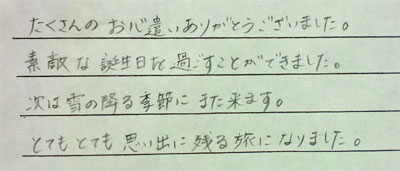 たくさんの お心遣いありがとうございました。
素敵な誕生日を過ごすことができました。
次は雪の降る季節に また来ます。
とてもとても思い出に残る旅になりました。